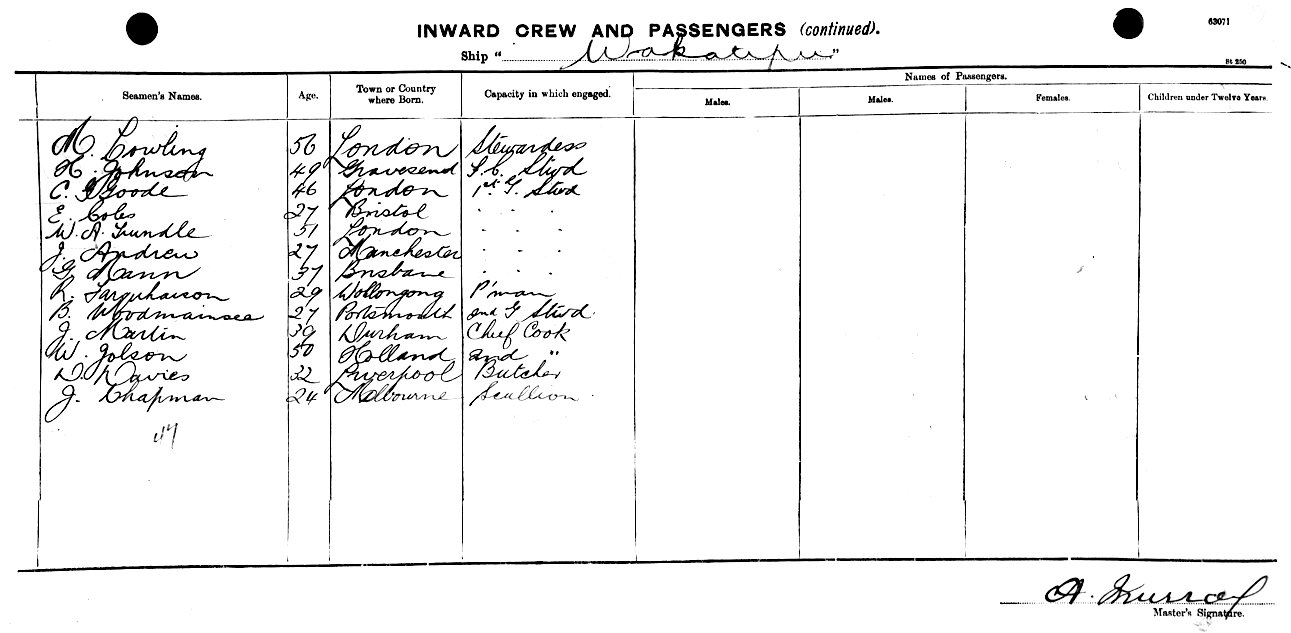 INWARD CREW AND PASSENGERS (continued).
63071
Ship "Wakatipu"
St 250
Names of Passengers.
Seamen's Names. Age. Town or Country where Born. Capacity in which engaged. Males. Males. Females. Children under Twelve Years.
M. Cowling 56 London Stewardess
H. Johnson 49 Gravesend S.C. Stwd
C. Goode 46 London 1st G. Stwd
E. Coles 27 Bristol . . .
W. A. Trundle 31 London . . .
J. Andrew 27 Manchester . . .
G. Mann 37 Brisbane . . .
R. Farquharson 29 Wollongong P'man
B. Woodmainsee 27 Portsmouth 2nd G Stwd.
J. Martin 39 Durham Chief Cook
W. Jolson 50 Holland 2nd "
D. Davies 32 Liverpool Butcher
J. Chapman 24 Melbourne Scullion
47
A.
Master's Signature.